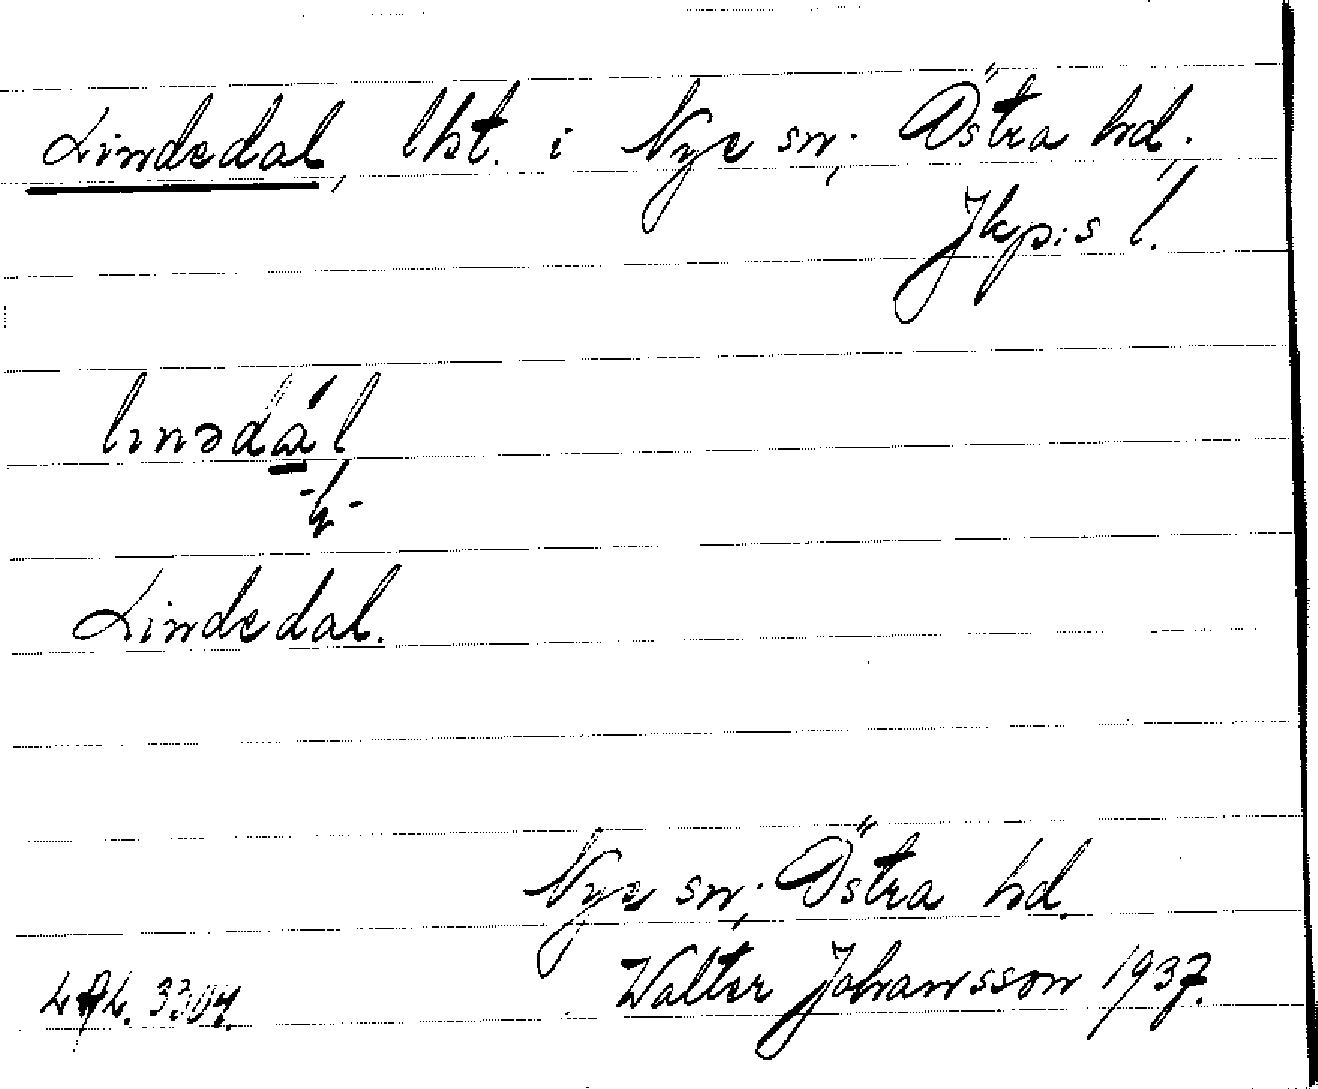 Lindedal, lht. i Nye sn; Östra hd,
Jkp:s l.
lınədál
Lindedal.
Nye sn; Östra hd.
Walter Johansson 1937.
3304.